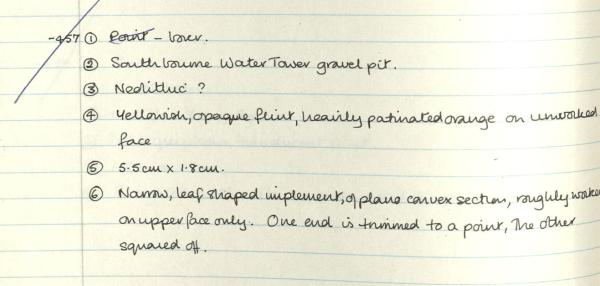 -457 ① Point - borer.
② Southbourne Water Tower gravel pit.
③ Neolithic ?
④ Yellowish, opaque flint, heavily patinated orange on unworked
face
⑤ 5.5cm x 1.8cm.
⑥ Narrow, leaf shaped implement, of plano convex section, roughly worked
on upper face only. One end is trimmed to a point, The other
squared off.